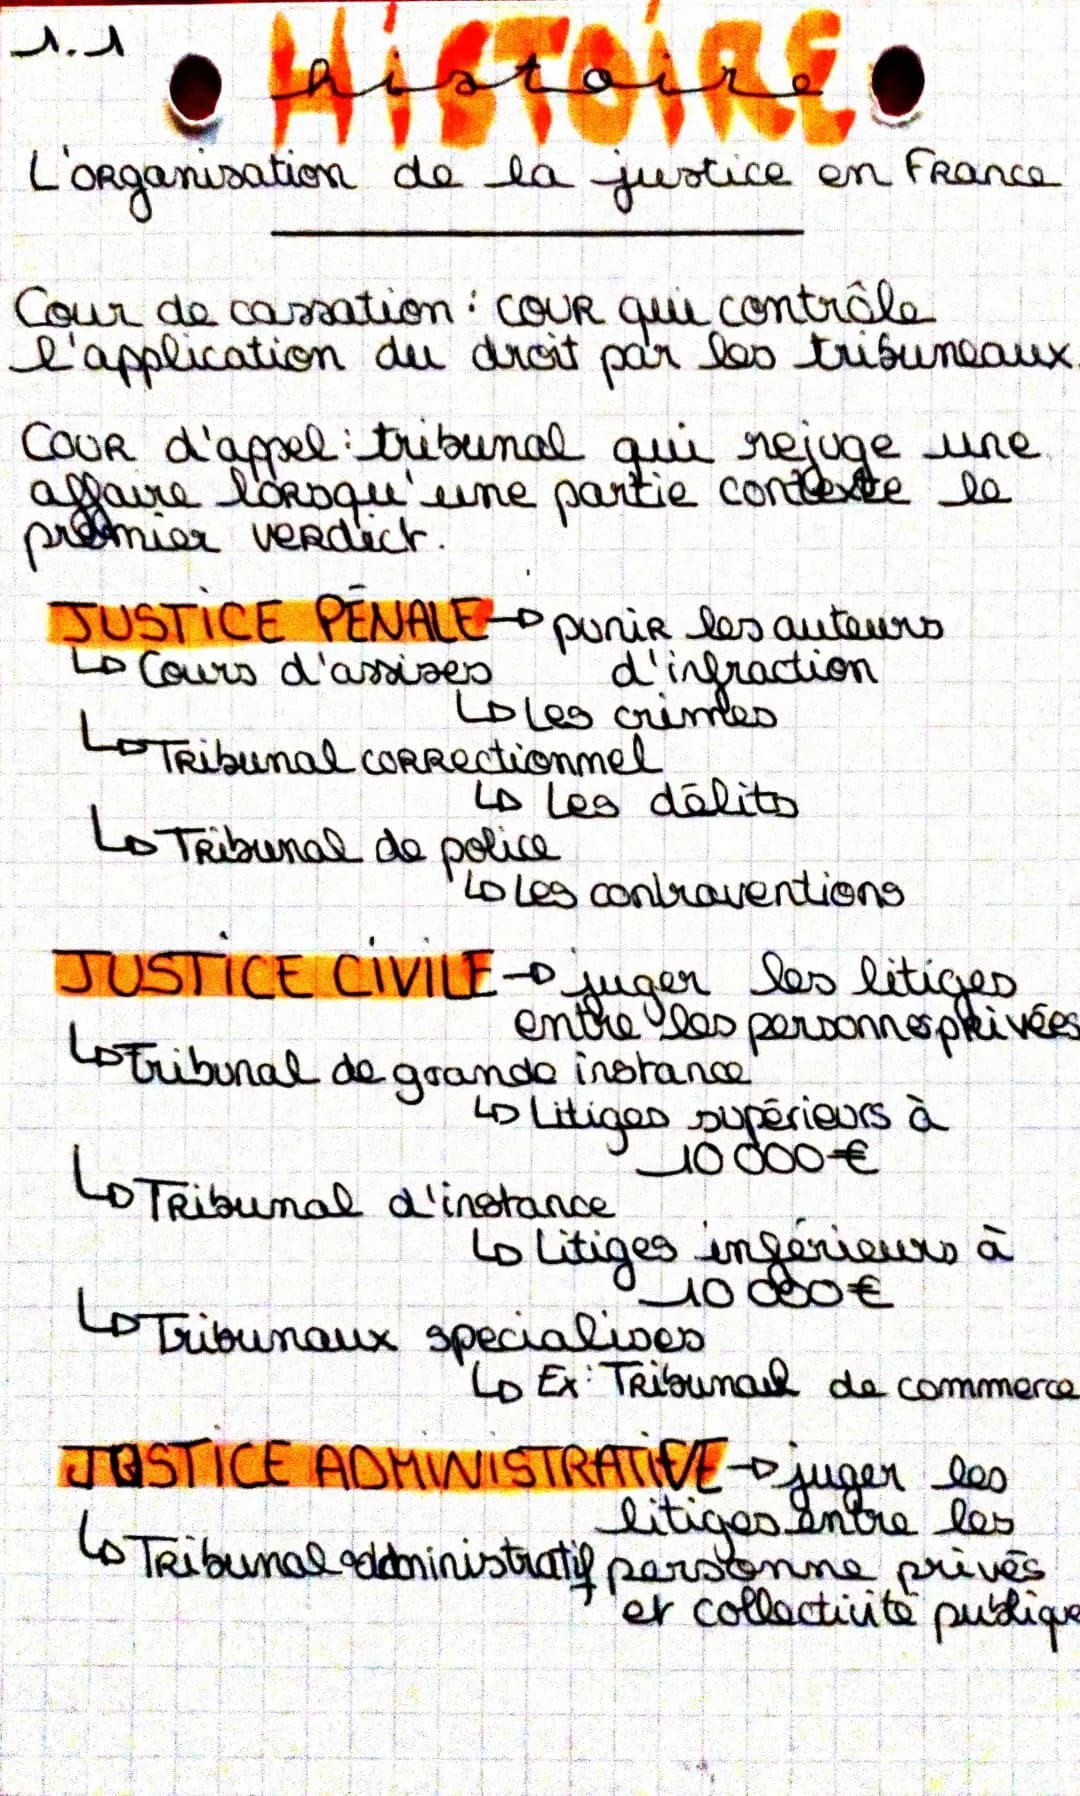 1.1
HISTOIRE
histoire
L'organisation de la justice en France
Cour de cassation : cour qui contrôle
l'application du droit par les tribuneaux.
Cour d'appel : tribunal qui rejuge une
affaire lorsqu'une partie conteste le
premier verdict.
JUSTICE PÉNALE → punir les auteurs
↳ Cours d'assises d'infraction
↳ Les crimes
↳ Tribunal correctionnel
↳ Les délits
↳ Tribunal de police
↳ Les contraventions
JUSTICE CIVILE → juger les litiges
entre les personnes privées
↳ tribunal de grande instance
↳ Litiges supérieurs à
10 000 €
↳ Tribunal d'instance
↳ Litiges inférieurs à
10 000 €
↳ Tribunaux specialises
↳ Ex : Tribunal de commerce
JUSTICE ADMINISTRATIVE → juger les
litiges entre les
↳ Tribunal administratif personne privés
et collectivité publique